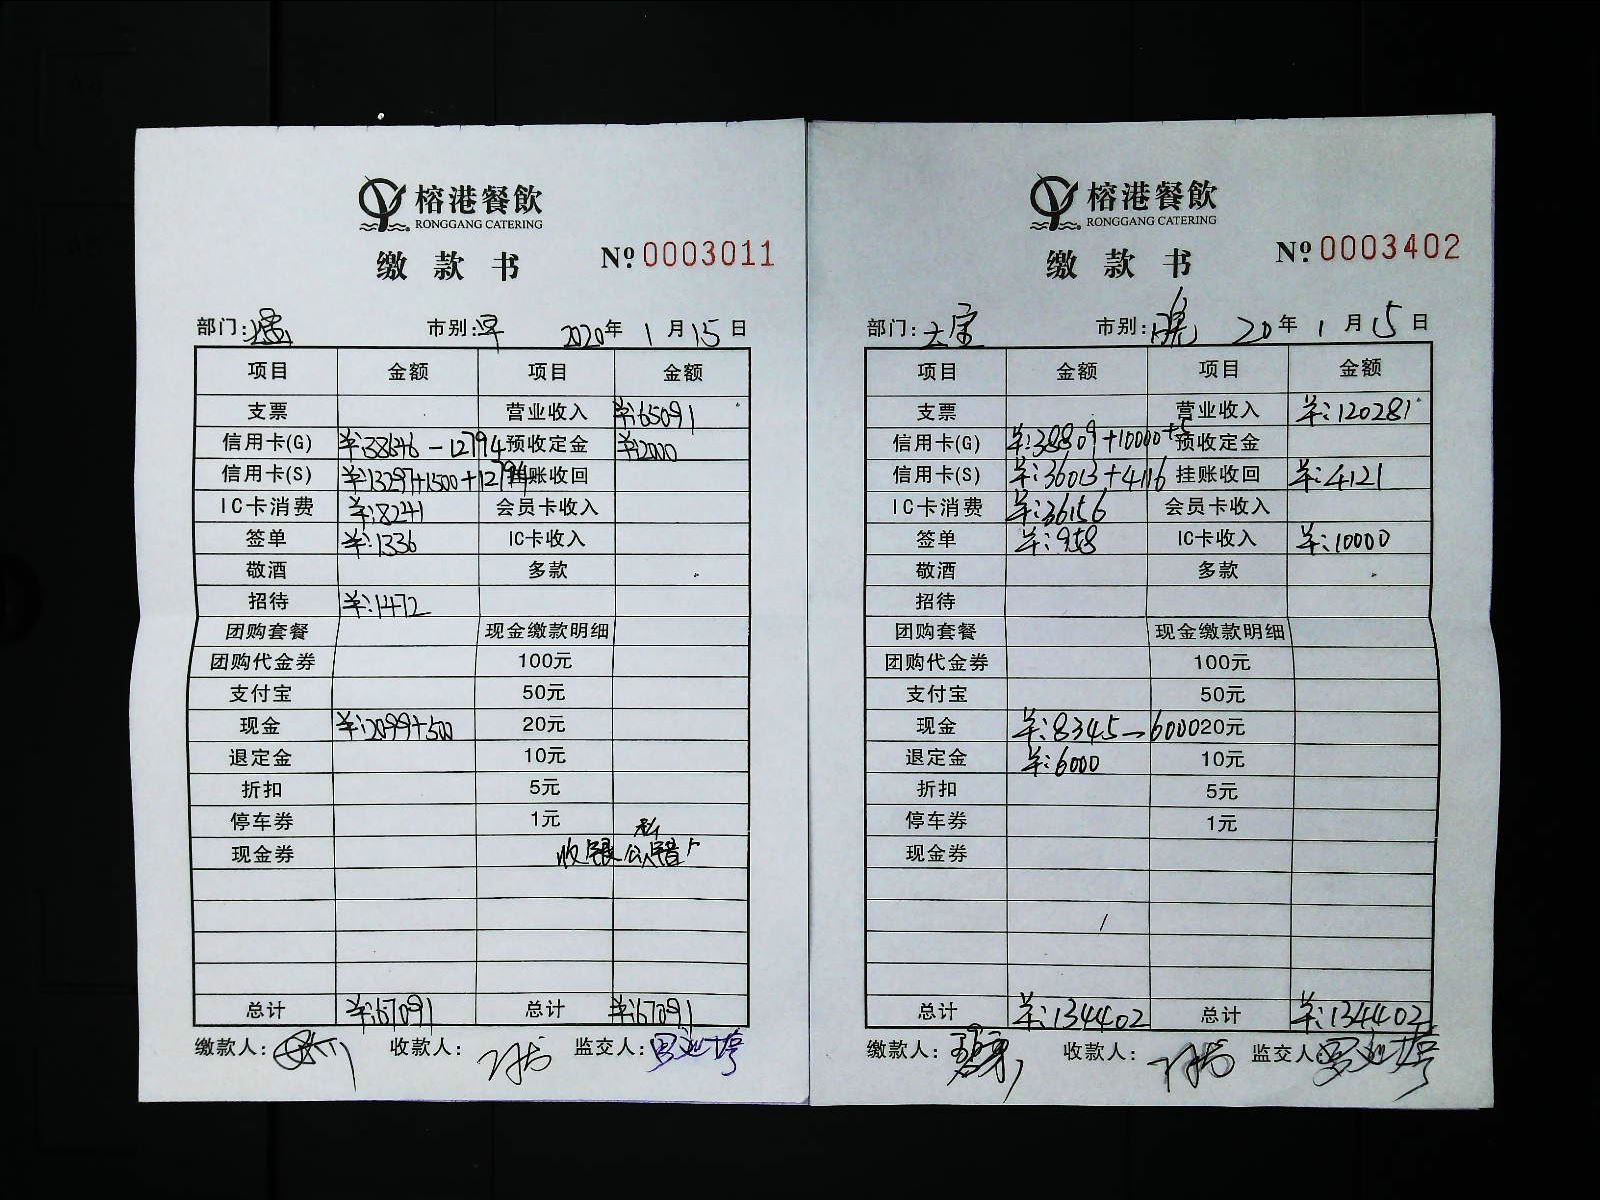 榕港餐飲
RONGGANG CATERING
缴款书 №0003011
部门: 市别:早 2020年1月15日
项目 金额 项目 金额
支票 营业收入 ¥:65091
信用卡(G) ¥:38646-12794 预收定金 ¥:2000
信用卡(S) ¥:13297+1500+12794 挂账收回
IC卡消费 ¥:8241 会员卡收入
签单 ¥:1336 IC卡收入
敬酒 多款
招待 ¥:1472
团购套餐 现金缴款明细
团购代金券 100元
支付宝 50元
现金 ¥:2099+500 20元
退定金 10元
折扣 5元
停车券 1元
现金券
总计 ¥:67091 总计 ¥:67091
缴款人: 收款人: 监交人:
榕港餐飲
RONGGANG CATERING
缴款书 №0003402
部门: 市别:晚 20年1月15日
项目 金额 项目 金额
支票 营业收入 ¥:120281
信用卡(G) ¥:38809+10000+5 预收定金
信用卡(S) ¥:36013+4116 挂账收回 ¥:4121
IC卡消费 ¥:36156 会员卡收入
签单 ¥:958 IC卡收入 ¥:10000
敬酒 多款
招待
团购套餐 现金缴款明细
团购代金券 100元
支付宝 50元
现金 ¥:8345-6000 20元
退定金 ¥:6000 10元
折扣 5元
停车券 1元
现金券
总计 ¥:134402 总计 ¥:134402
缴款人: 收款人: 监交人: